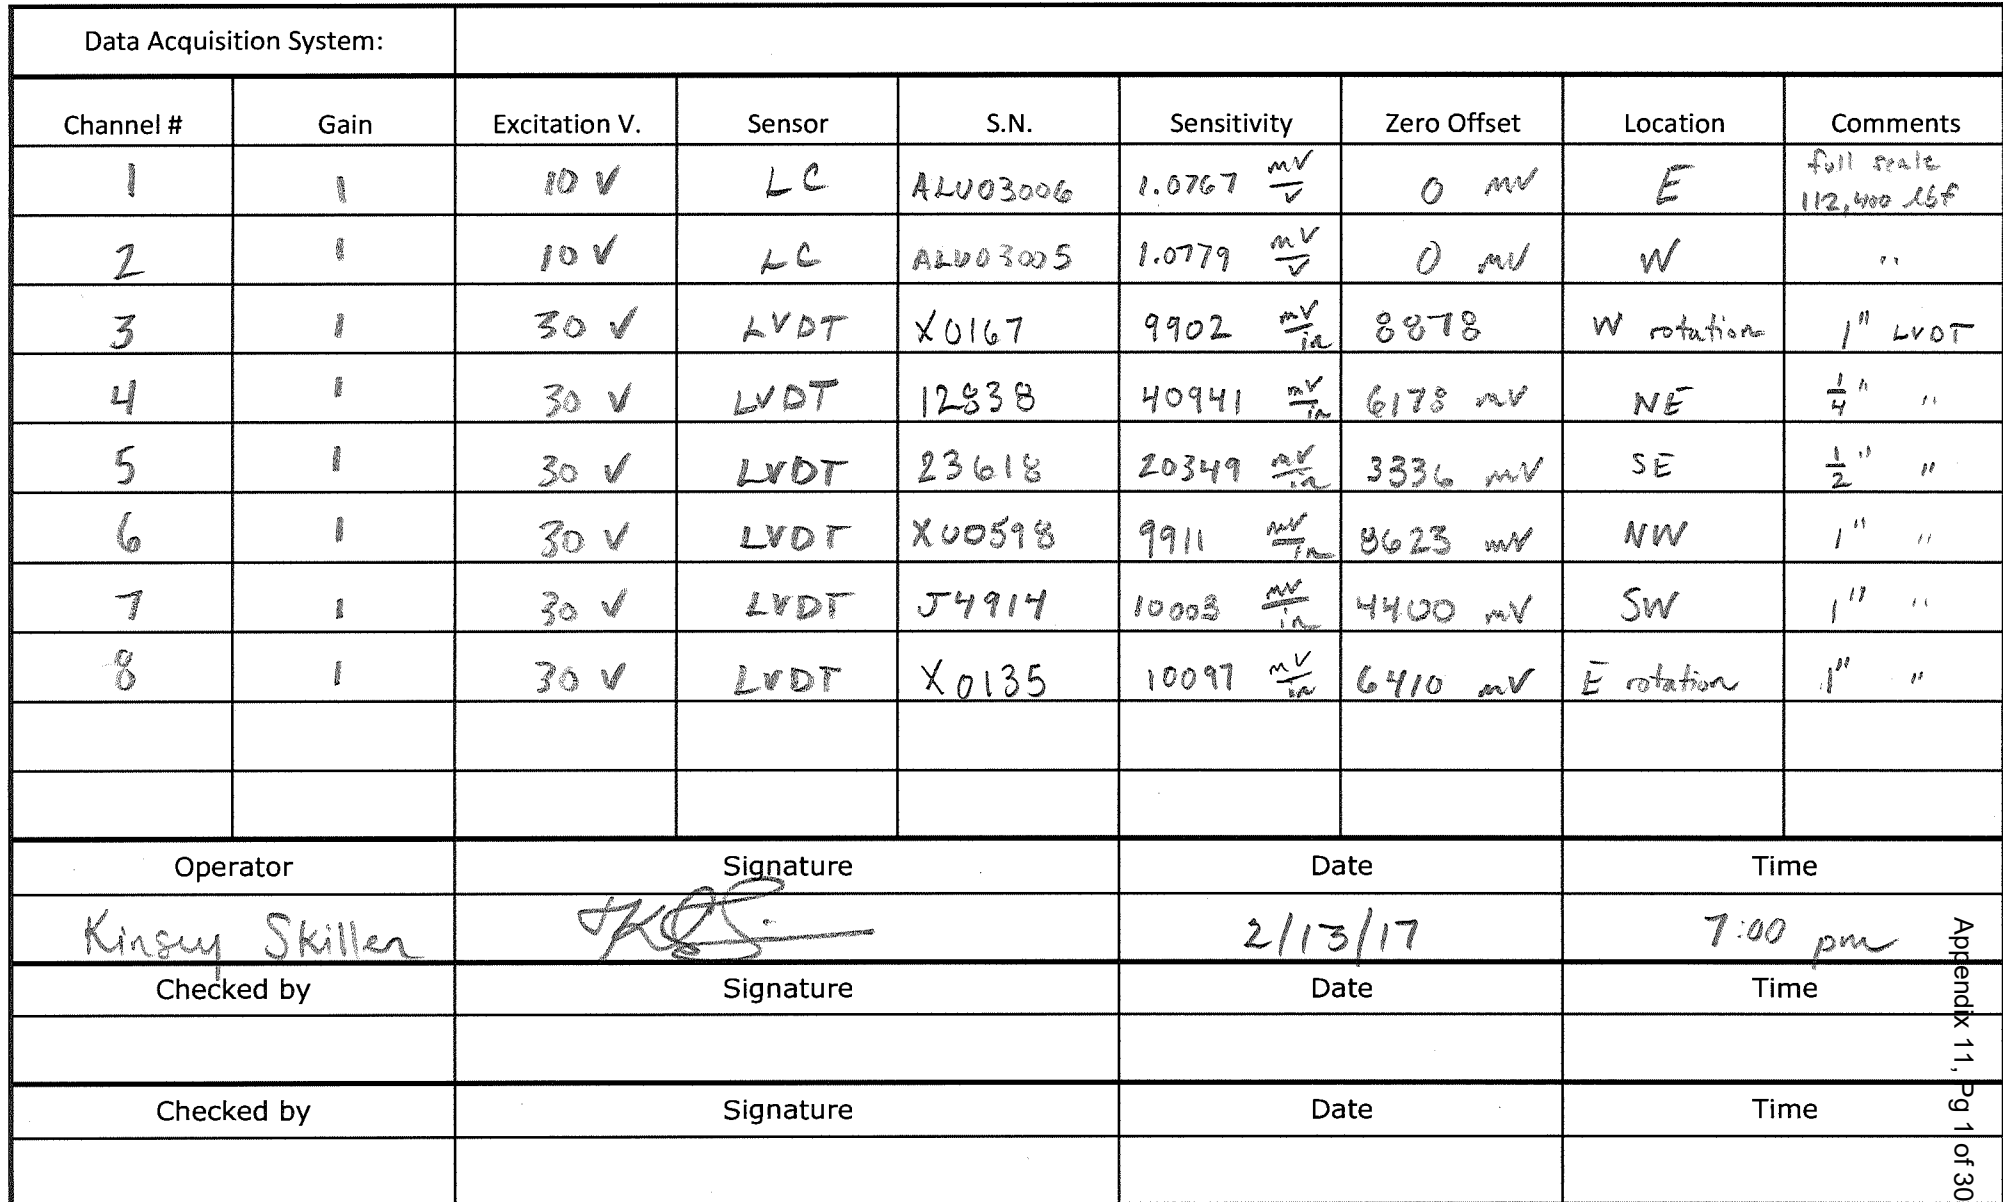 Data Acquisition System:
Channel # Gain Excitation V. Sensor S.N. Sensitivity Zero Offset Location Comments
1 1 10 V LC ALU03006 1.0767 mV/V 0 mV E full scale 112,400 lbf
2 1 10 V LC ALU03005 1.0779 mV/V 0 mV W "
3 1 30 V LVDT X0167 9902 mV/in 8878 W rotation 1" LVDT
4 1 30 V LVDT 12838 40941 mV/in 6178 mV NE 1/4" "
5 1 30 V LVDT 23618 20349 mV/in 3336 mV SE 1/2" "
6 1 30 V LVDT X00598 9911 mV/in 8623 mV NW 1" "
7 1 30 V LVDT J4914 10003 mV/in 4400 mV SW 1" "
8 1 30 V LVDT X0135 10097 mV/in 6410 mV E rotation 1" "
Operator Signature Date Time
Kinsey Skillen 2/13/17 7:00 pm
Checked by Signature Date Time
Checked by Signature Date Time
Appendix 11, Pg 1 of 30